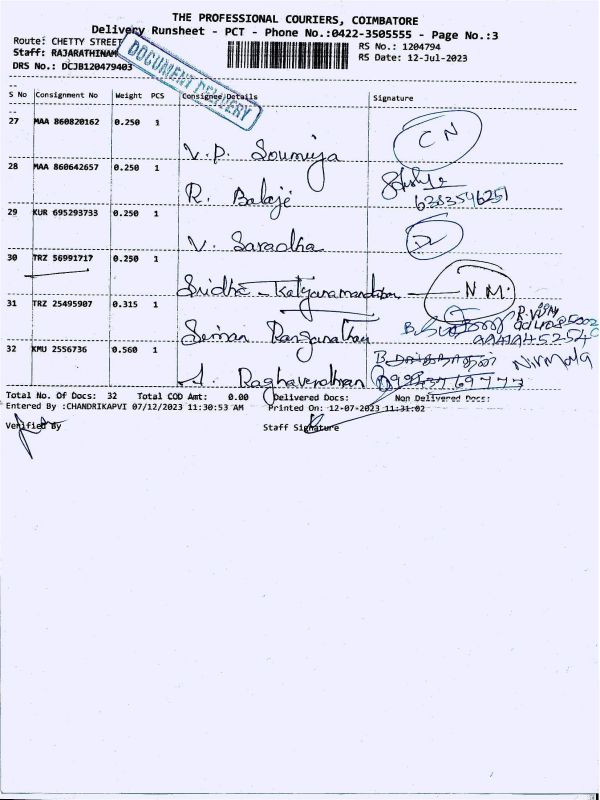 THE PROFESSIONAL COURIERS, COIMBATORE
Delivery Runsheet - PCT - Phone No.:0422-3505555 - Page No.:3
Route: CHETTY STREET
RS No.: 1204794
Staff: RAJARATHINAM
RS Date: 12-Jul-2023
DRS No.: DCJB120479403
DOCUMENT DELIVERY
S No Consignment No Weight PCS Consignee/Details Signature
27 MAA 860820162 0.250 1
V.P. Soumiya CN
28 MAA 860642657 0.250 1
R. Balaje
6383546251
29 KUR 695293733 0.250 1
V. Saradha
30 TRZ 56991717 0.250 1
Sridhe - Kalyanamandabam N M.
31 TRZ 25495907 0.315 1
Ranganathan
32 KMU 2556736 0.560 1
Nirmala
Raghavendhran
Total No. Of Docs: 32 Total COD Amt: 0.00 Delivered Docs: Non Delivered Docs:
Entered By :CHANDRIKAPVI 07/12/2023 11:30:53 AM Printed On: 12-07-2023 11:31:02
Verified By Staff Signature